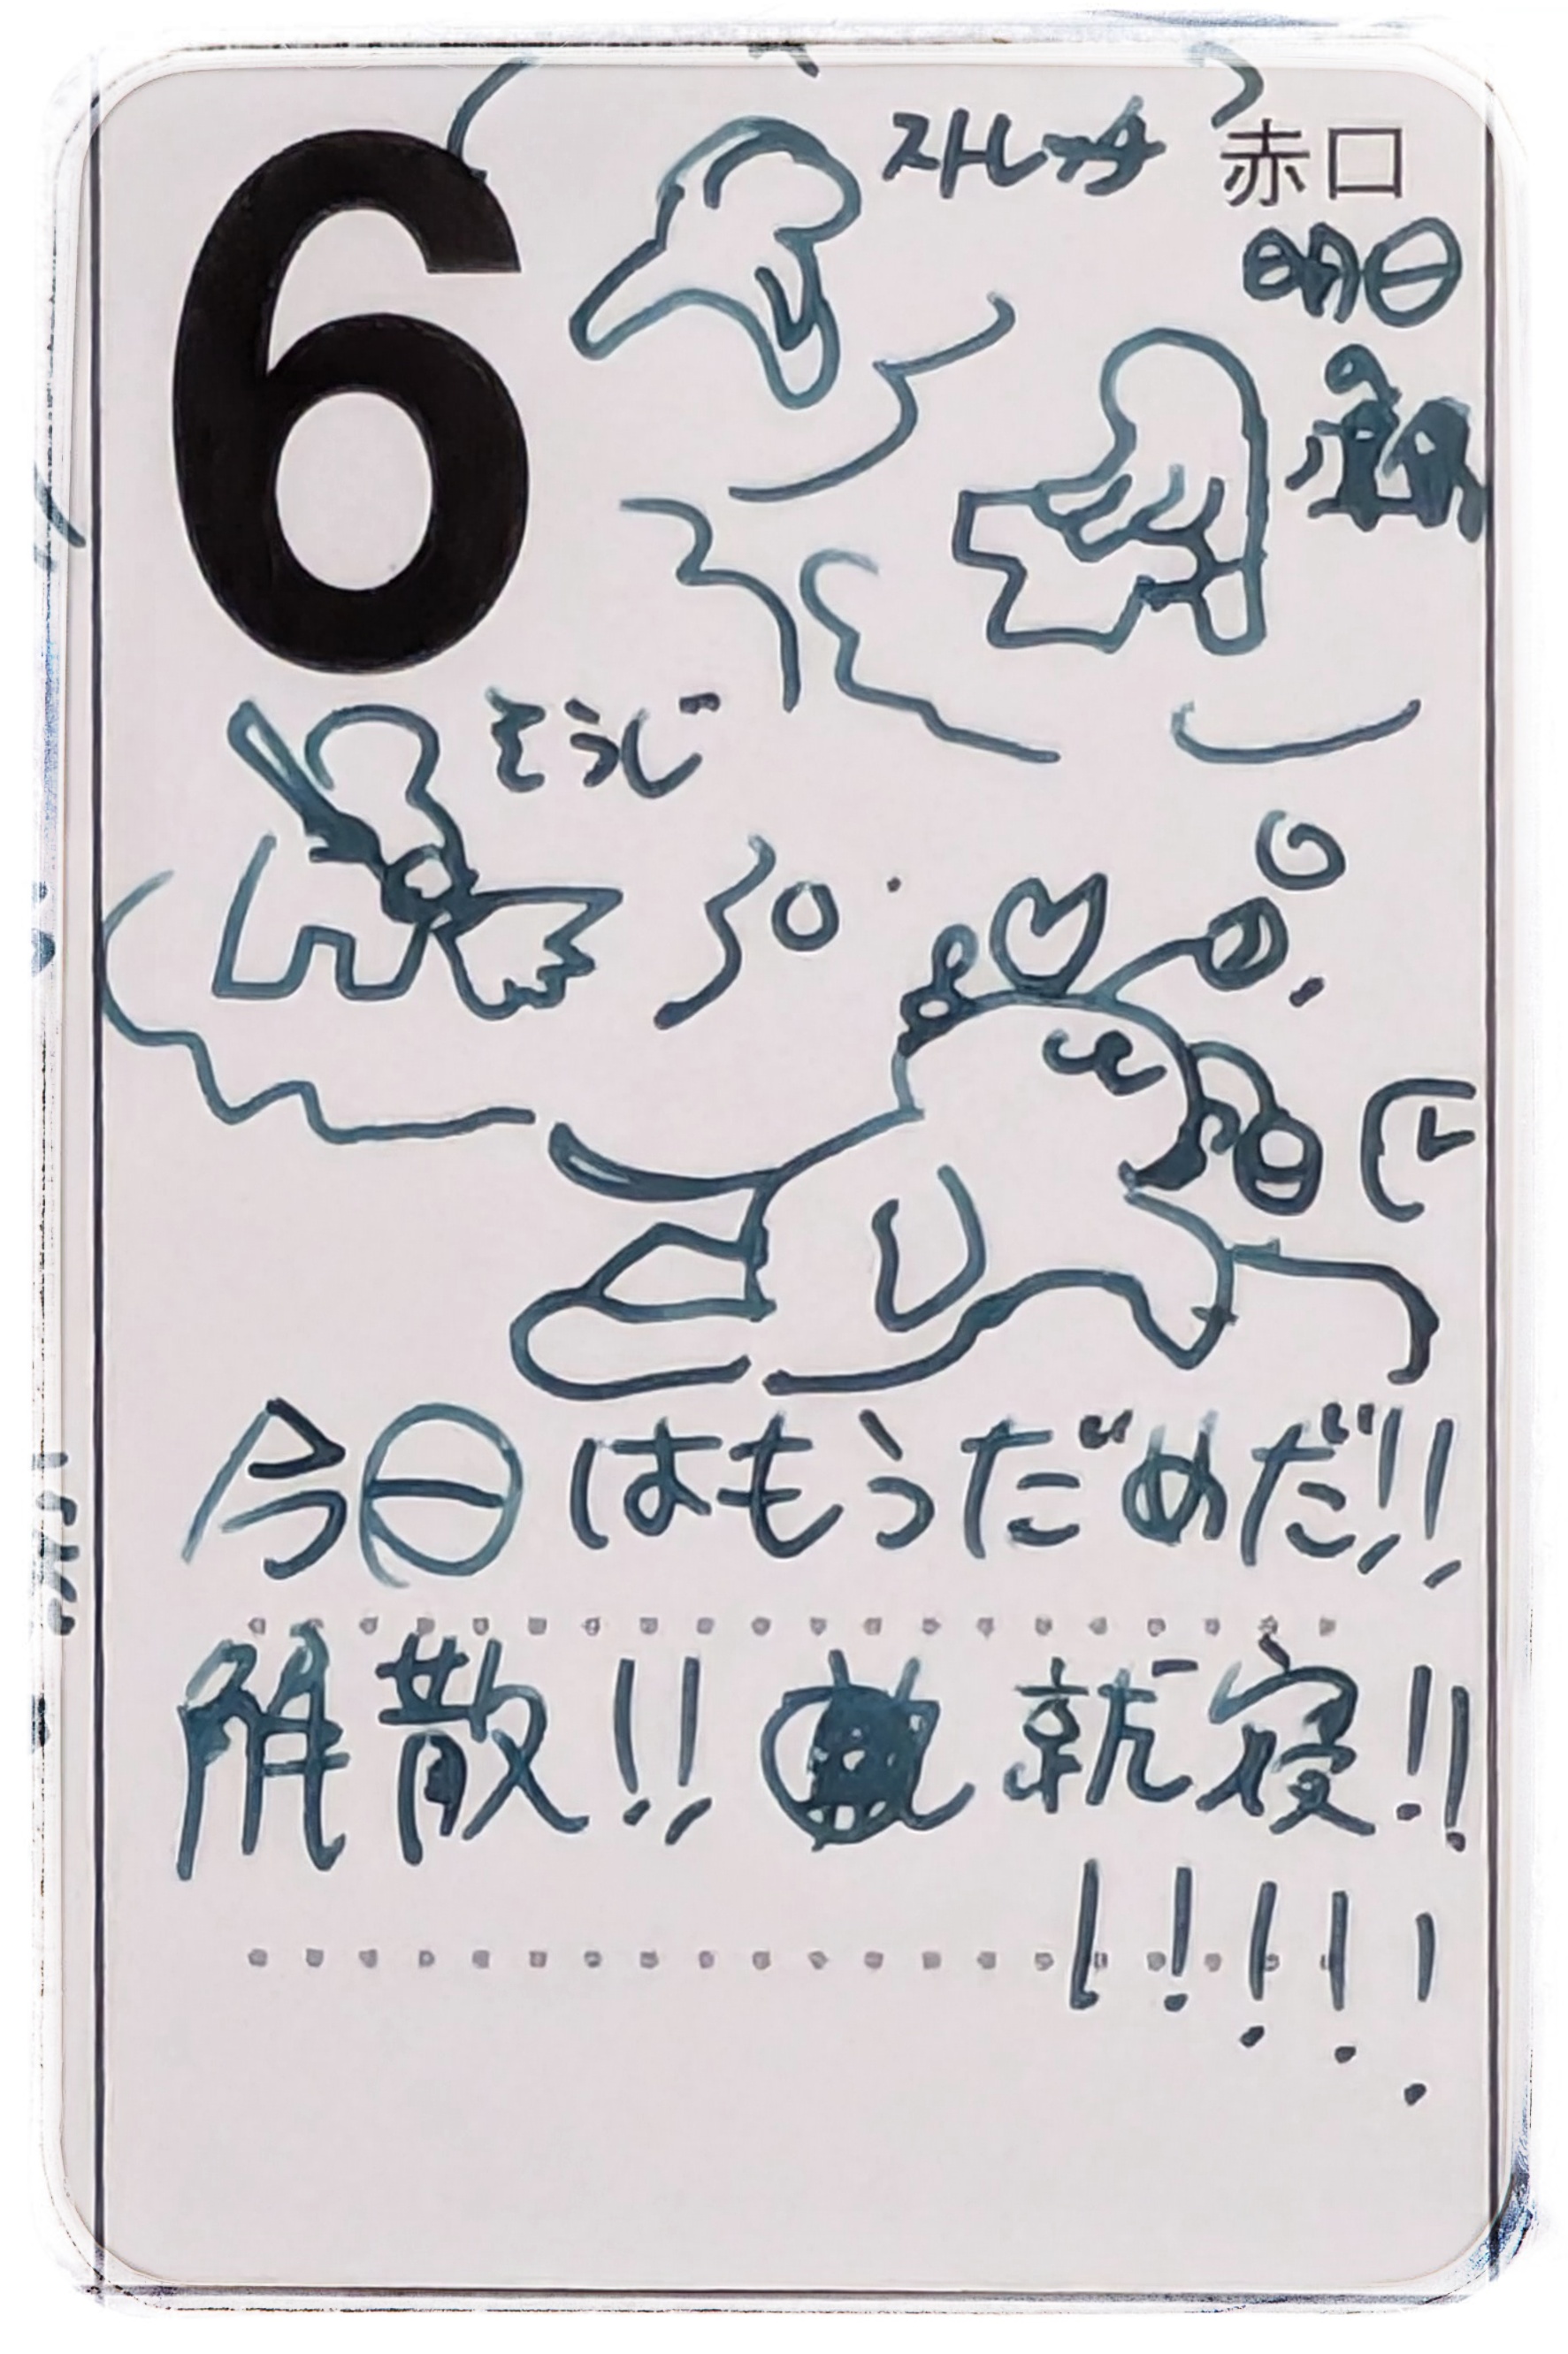 6
赤口
ストレッチ
明日
そうじ
今日はもうだめだ!!
解散!! 就寝!!
!!!!!